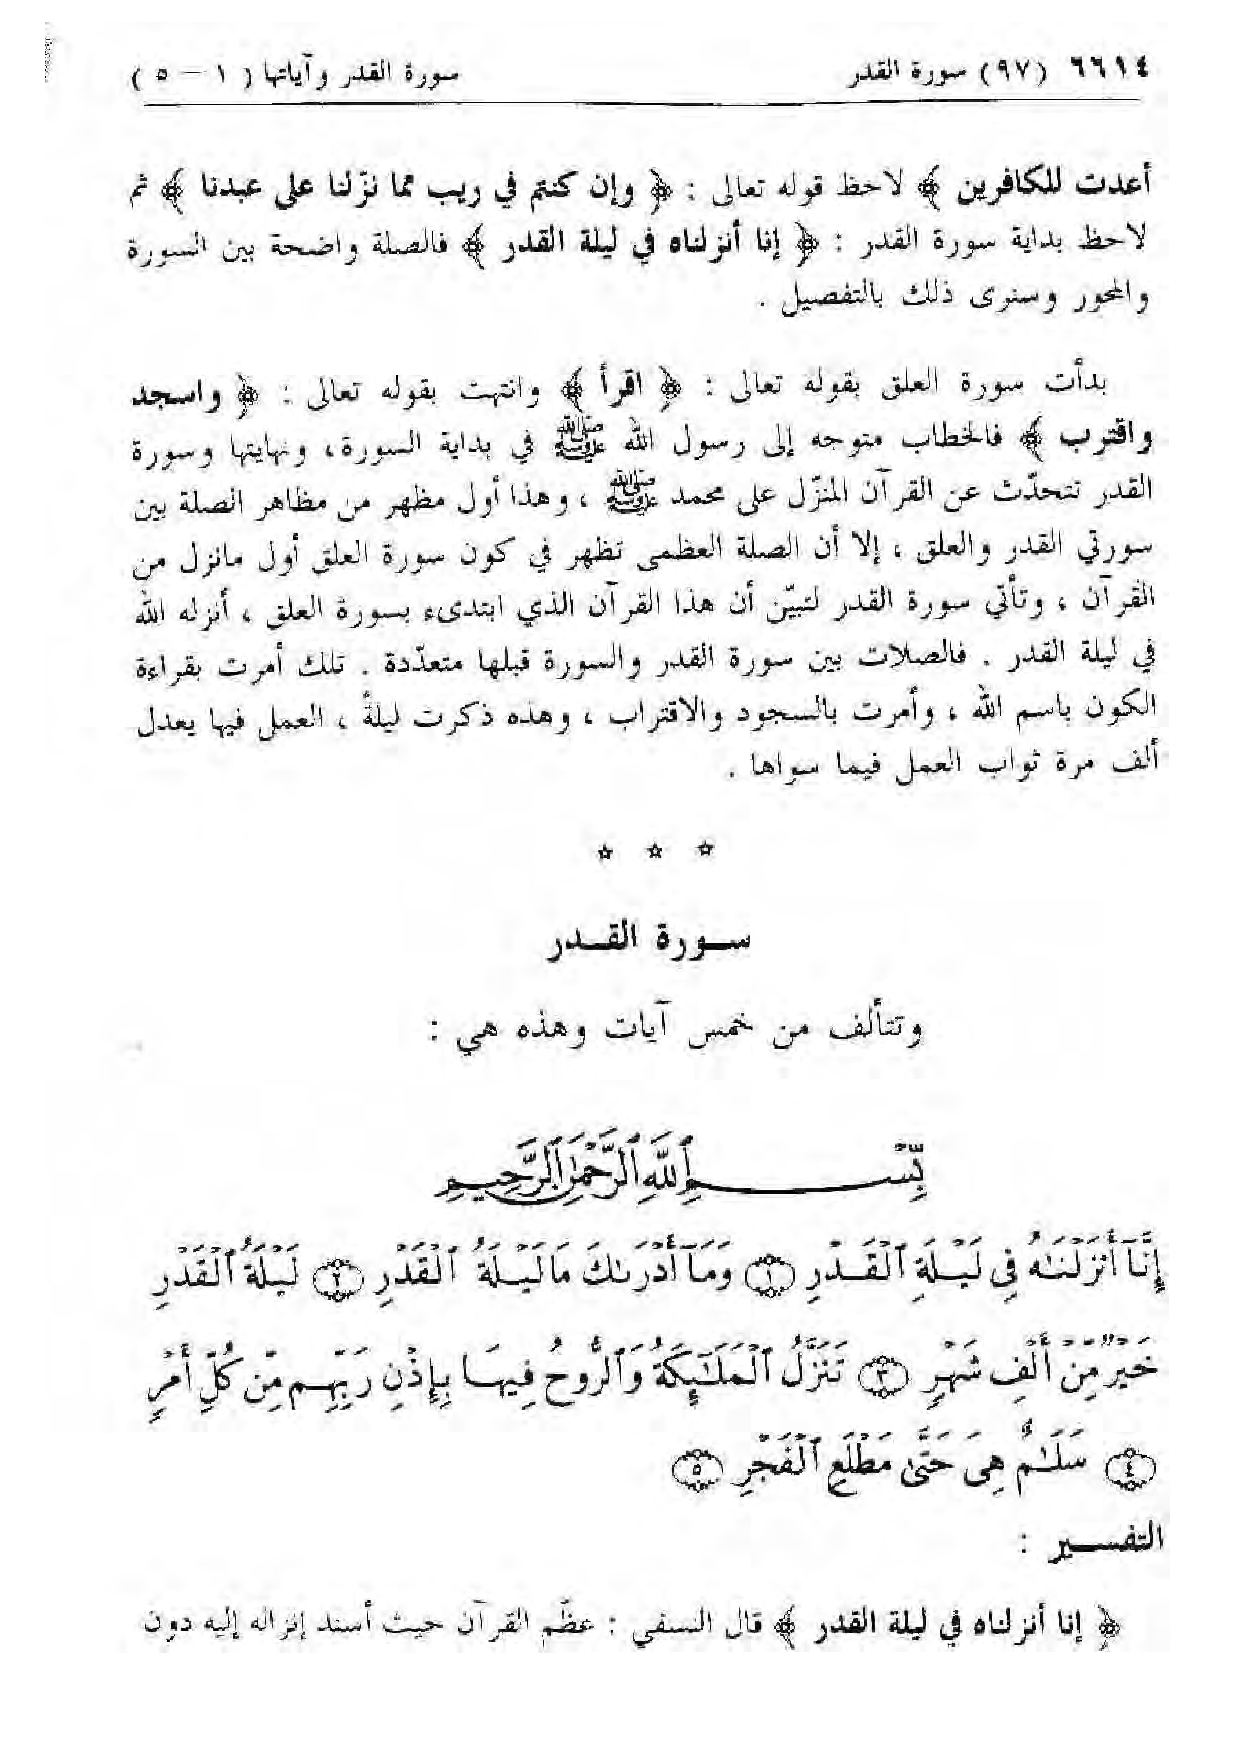 ٦٦١٤ (٩٧) سورة القدر سورة القدر وآياتها ( ١ – ٥ )
أعدت للكافرين ﴾ لاحظ قوله تعالى : ﴿ وإن كنتم في ريب مما نزّلنا على عبدنا ﴾ ثم
لاحظ بداية سورة القدر : ﴿ إنا أنزلناه في ليلة القدر ﴾ فالصلة واضحة بين السورة
والمحور وسنرى ذلك بالتفصيل .
بدأت سورة العلق بقوله تعالى : ﴿ اقرأ ﴾ وانتهت بقوله تعالى : ﴿ واسجد
واقترب ﴾ فالخطاب متوجه إلى رسول الله ﷺ في بداية السورة، ونهايتها وسورة
القدر تتحدّث عن القرآن المنزّل على محمد ﷺ ، وهذا أول مظهر من مظاهر الصلة بين
سورتي القدر والعلق ، إلا أن الصلة العظمى تظهر في كون سورة العلق أول مانزل من
القرآن ، وتأتي سورة القدر لتبيّن أن هذا القرآن الذي ابتدىء بسورة العلق ، أنزله الله
في ليلة القدر . فالصلات بين سورة القدر والسورة قبلها متعدّدة . تلك أمرت بقراءة
الكون باسم الله ، وأمرت بالسجود والاقتراب ، وهذه ذكرت ليلةً ، العمل فيها يعدل
ألف مرة ثواب العمل فيما سواها .
☆ ☆ ☆
سورة القدر
وتتألف من خمس آيات وهذه هي :
بِسْمِ ٱللَّهِ ٱلرَّحْمَٰنِ ٱلرَّحِيمِ
إِنَّآ أَنزَلْنَٰهُ فِى لَيْلَةِ ٱلْقَدْرِ ١ وَمَآ أَدْرَىٰكَ مَا لَيْلَةُ ٱلْقَدْرِ ٢ لَيْلَةُ ٱلْقَدْرِ
خَيْرٌ مِّنْ أَلْفِ شَهْرٍ ٣ تَنَزَّلُ ٱلْمَلَٰٓئِكَةُ وَٱلرُّوحُ فِيهَا بِإِذْنِ رَبِّهِم مِّن كُلِّ أَمْرٍ
٤ سَلَٰمٌ هِىَ حَتَّىٰ مَطْلَعِ ٱلْفَجْرِ ٥
التفسير :
﴿ إنا أنزلناه في ليلة القدر ﴾ قال النسفي : عظّم القرآن حيث أسند إنزاله إليه دون